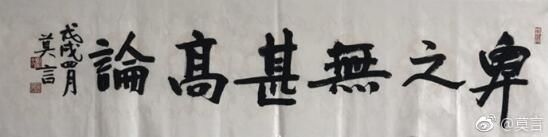 卑之無甚高論
戊戌四月
莫言
@莫言